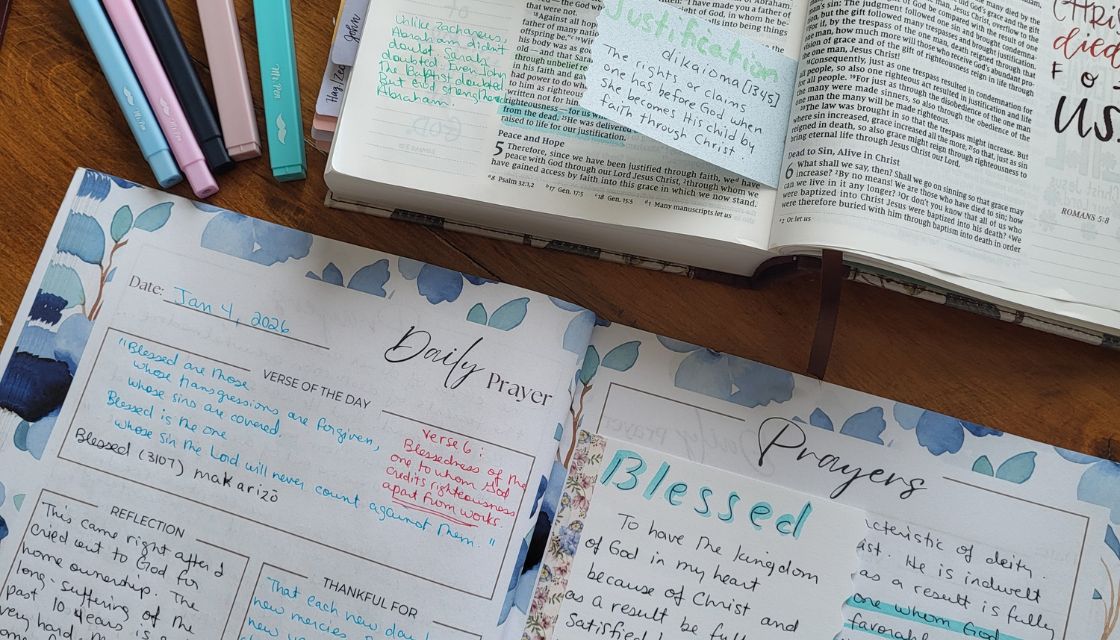 John
Hag, Zec
Mr. Pen
Unlike Zachariah,
Abraham didn't
doubt. Sarah
doubted. Even John
The Baptist doubted
but God strengthened
Abraham.
of
that were not.
"Against all hope
father of many nations
offspring be."
his body was as good
old—and that Sarah
through unbelief re
in his faith and gave
had power to do what
him as righteous
written not for him
righteousness—for us w
from the dead. 25He was delivered
raised to life for our justification.
Peace and Hope
5 Therefore, since we have been justified through faith, we
peace with God through our Lord Jesus Christ, 2through whom we
have gained access by faith into this grace in which we now stand.
a8 Psalm 32:1,2 b17 Gen. 17:5 c18 Gen. 15:5 d1 Many manuscripts let us
I have made you a father of
of God, in whom he be-
into being things
Justification
dikaioma [1345]
The rights or claims
one has before God when
s/he becomes His child by
faith through Christ.
The judgment followed one sin and brought condemnation,
but the gift followed many trespasses and brought justification.
For if, by the trespass of the one man, death reigned through
man, how much more will those who receive God's abundant
vision of grace and of the gift of righteousness reign in life through
one man, Jesus Christ!
18Consequently, just as one trespass resulted in condemnation for
all people, so also one righteous act resulted in justification and life
all people. 19For just as through the disobedience of the one man
the many were made sinners, so also through the obedience of the
one man the many will be made righteous.
20The law was brought in so that the trespass might increase. But
where sin increased, grace increased all the more, 21so that, just as sin
reigned in death, so also grace might reign through righteousness to
bring eternal life through Jesus Christ our Lord.
Dead to Sin, Alive in Christ
6 What shall we say, then? Shall we go on sinning so that grace may
increase? 2By no means! We are those who have died to sin; how
can we live in it any longer? 3Or don't you know that all of us who
were baptized into Christ Jesus were baptized into his death? 4We
were therefore buried with him through baptism into death in order
a2 Or let us
Christ
died
FOR
US
ROMANS 5:8
Date: Jan 4, 2026
Daily Prayer
VERSE OF THE DAY
"Blessed are those
whose transgressions are forgiven,
whose sins are covered.
Blessed is the one
whose sin the Lord will never count against them."
Blessed (3107) makarizō
Verse 6:
Blessedness of the
one to whom God
credits righteousness
apart from works.
REFLECTION
This came right after I
cried out to God for
home ownership. The
long-suffering of the
past 10 years is a
very hard
THANKFUL FOR
That each new day
new mercies
new
Prayers
Blessed
To have the kingdom
of God in my heart
because of Christ
and
as a result be full
satisfied
cteristic of deity.
ist. He is indwelt
as a result is fully
one whom God
favorable